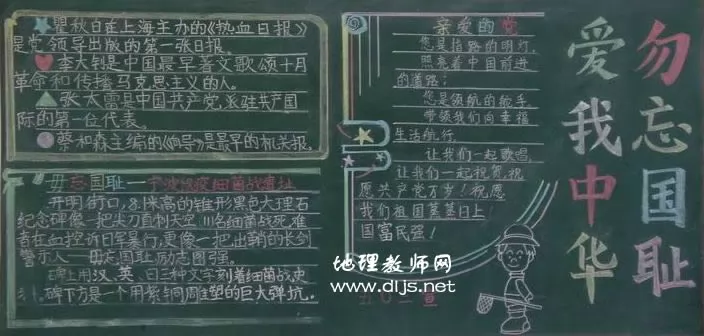 瞿秋白在上海主办的《热血日报》
是党领导出版的第一张日报。
李大钊是中国最早著文歌颂十月
革命和传播马克思主义的人。
张太雷是中国共产党派驻共产国
际的第一位代表。
蔡和森主编的《向导》是最早的机关报。
毋忘国耻——宁波鼠疫细菌战遗址
开明街口,8.1米高的锥形黑色大理石
纪念碑像一把尖刀直刺天空,111名细菌战死难
者在血控诉日军暴行,更像一把出鞘的长剑
警示人——毋忘国耻,励志图强。
碑上用汉、英、日三种文字刻着细菌战史
碑下方是一个用紫铜雕塑的巨大弹坑。
亲爱的党
您是指路的明灯,
照亮着中国前进
的道路;
您是领航的舵手,
带领我们向幸福
生活航行。
让我们一起歌唱,
让我们一起祝贺,祝
愿共产党万岁!祝愿
我们祖国蒸蒸日上!
国富民强!
勿忘国耻
爱我中华
地理教师网
www.dljs.net